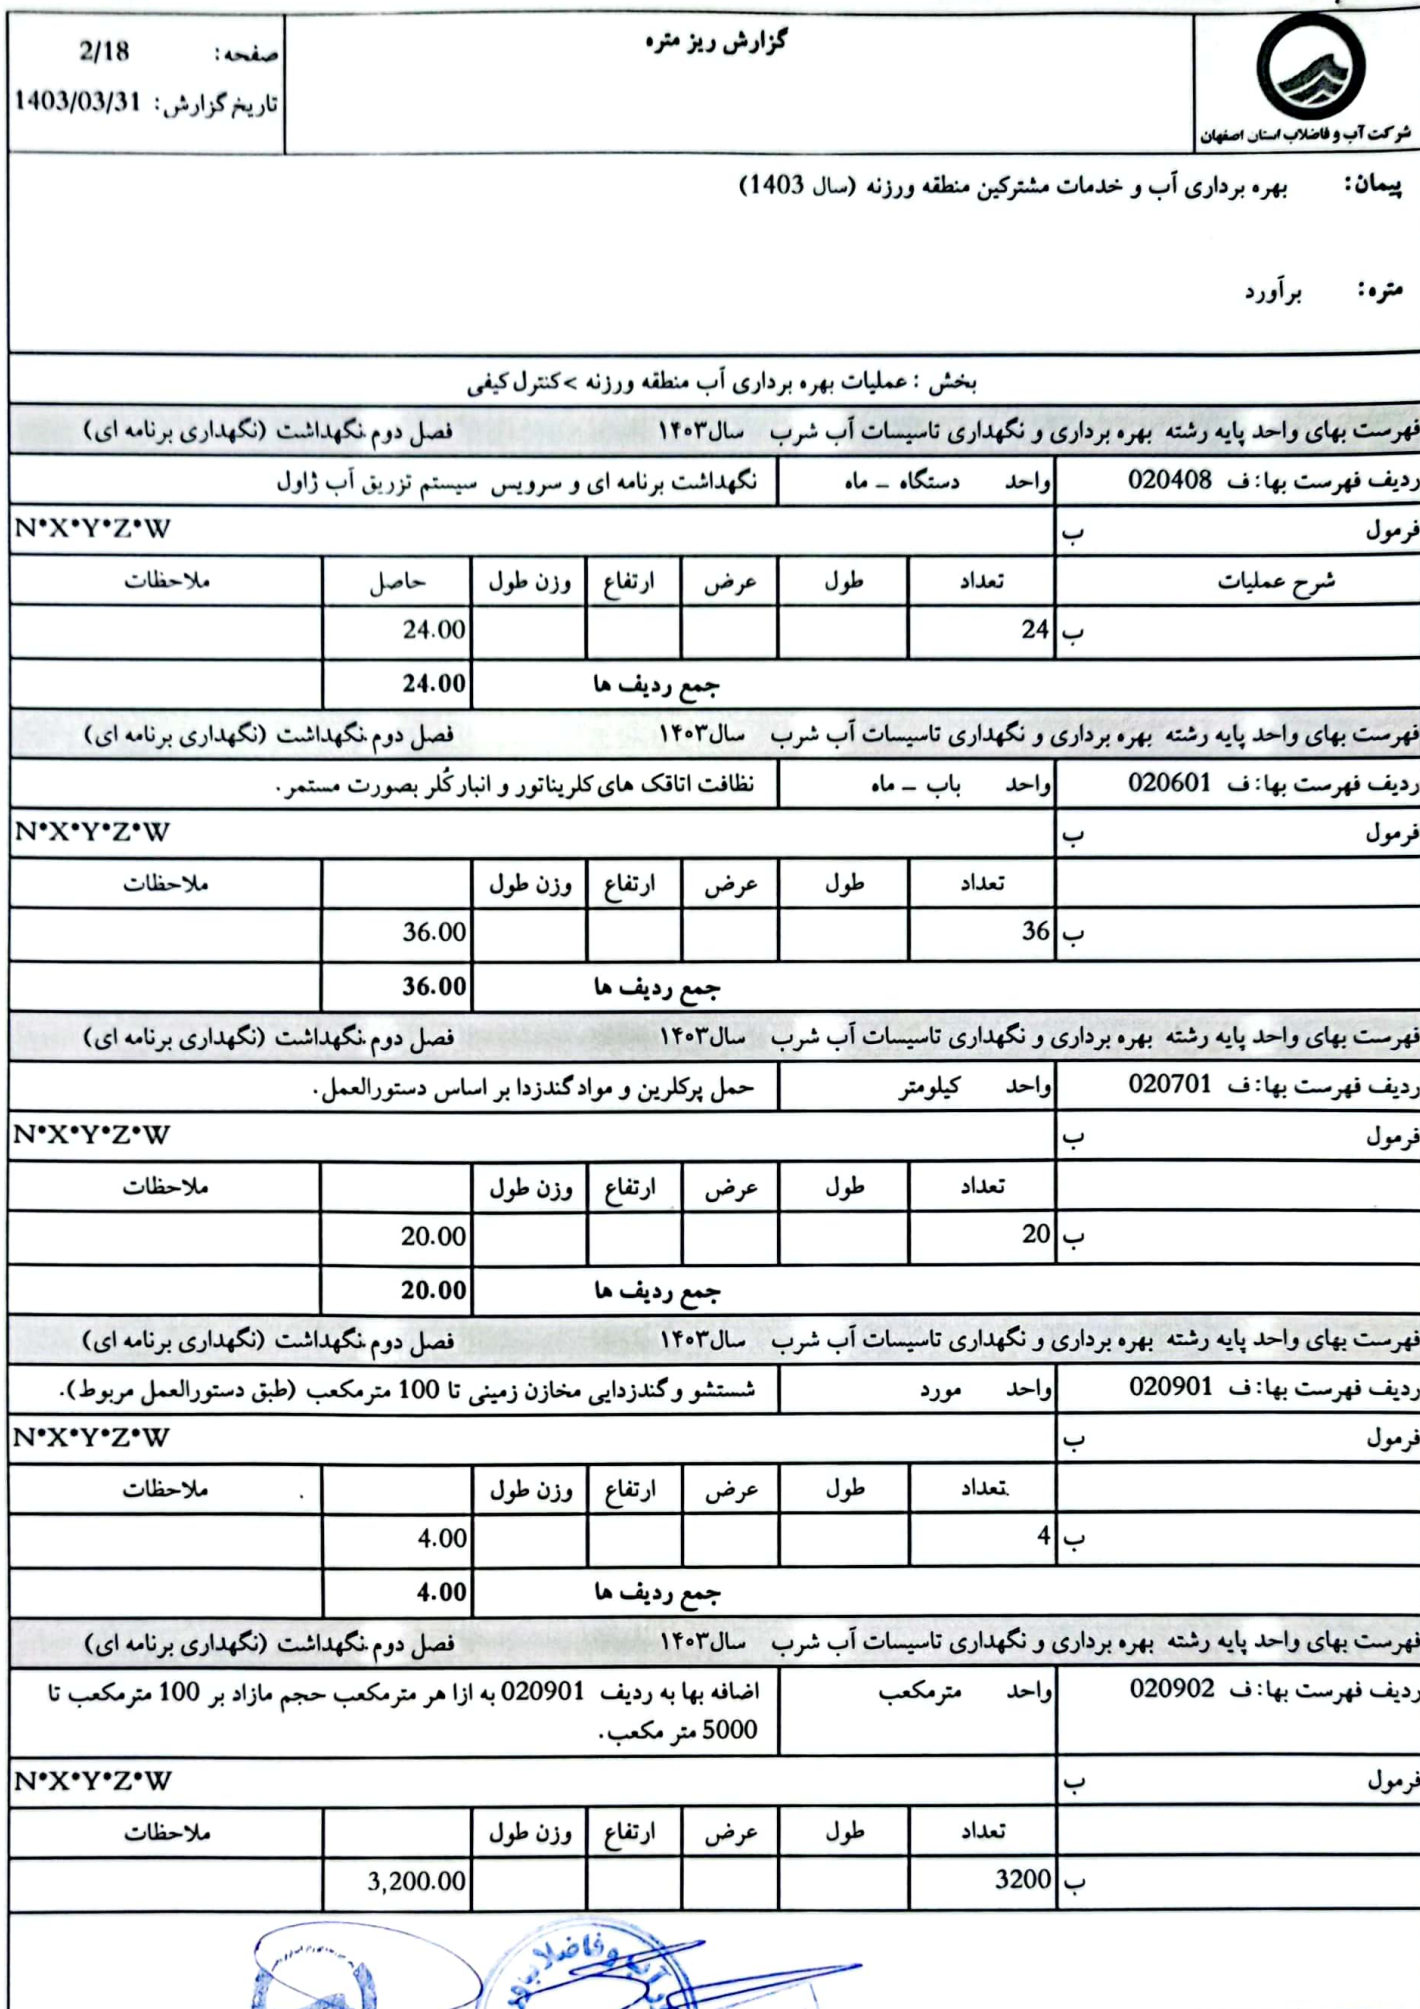 گزارش ریز متره
شرکت آب و فاضلاب استان اصفهان
صفحه: 2/18
تاریخ گزارش: 1403/03/31
پیمان: بهره برداری آب و خدمات مشترکین منطقه ورزنه (سال 1403)
متره: برآورد
بخش : عملیات بهره برداری آب منطقه ورزنه >کنترل کیفی
فهرست بهای واحد پایه رشته بهره برداری و نگهداری تاسیسات آب شرب سال۱۴۰۳ فصل دوم نگهداشت (نگهداری برنامه ای)
ردیف فهرست بها: ف 020408 واحد دستگاه - ماه نگهداشت برنامه ای و سرویس سیستم تزریق آب ژاول
فرمول ب N*X*Y*Z*W
شرح عملیات تعداد طول عرض ارتفاع وزن طول حاصل ملاحظات
ب 24 24.00
جمع ردیف ها 24.00
فهرست بهای واحد پایه رشته بهره برداری و نگهداری تاسیسات آب شرب سال۱۴۰۳ فصل دوم نگهداشت (نگهداری برنامه ای)
ردیف فهرست بها: ف 020601 واحد باب - ماه نظافت اتاقک های کلریناتور و انبار کُلر بصورت مستمر.
فرمول ب N*X*Y*Z*W
تعداد طول عرض ارتفاع وزن طول ملاحظات
ب 36 36.00
جمع ردیف ها 36.00
فهرست بهای واحد پایه رشته بهره برداری و نگهداری تاسیسات آب شرب سال۱۴۰۳ فصل دوم نگهداشت (نگهداری برنامه ای)
ردیف فهرست بها: ف 020701 واحد کیلومتر حمل پرکلرین و مواد گندزدا بر اساس دستورالعمل.
فرمول ب N*X*Y*Z*W
تعداد طول عرض ارتفاع وزن طول ملاحظات
ب 20 20.00
جمع ردیف ها 20.00
فهرست بهای واحد پایه رشته بهره برداری و نگهداری تاسیسات آب شرب سال۱۴۰۳ فصل دوم نگهداشت (نگهداری برنامه ای)
ردیف فهرست بها: ف 020901 واحد مورد شستشو و گندزدایی مخازن زمینی تا 100 مترمکعب (طبق دستورالعمل مربوط).
فرمول ب N*X*Y*Z*W
تعداد طول عرض ارتفاع وزن طول ملاحظات
ب 4 4.00
جمع ردیف ها 4.00
فهرست بهای واحد پایه رشته بهره برداری و نگهداری تاسیسات آب شرب سال۱۴۰۳ فصل دوم نگهداشت (نگهداری برنامه ای)
ردیف فهرست بها: ف 020902 واحد مترمکعب اضافه بها به ردیف 020901 به ازا هر مترمکعب حجم مازاد بر 100 مترمکعب تا
5000 متر مکعب.
فرمول ب N*X*Y*Z*W
تعداد طول عرض ارتفاع وزن طول ملاحظات
ب 3200 3,200.00
آب و فاضلاب